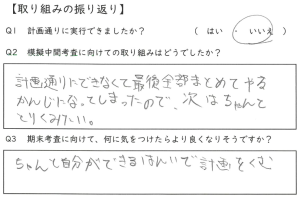 【取り組みの振り返り】
Q1 計画通りに実行できましたか? ( はい ・ いいえ )
Q2 模擬中間考査に向けての取り組みはどうでしたか?
計画通りにできなくて最後全部まとめてやる
かんじになってしまったので、次はちゃんと
とりくみたい。
Q3 期末考査に向けて、何に気をつけたらより良くなりそうですか?
ちゃんと自分ができるはんいで計画をくむ